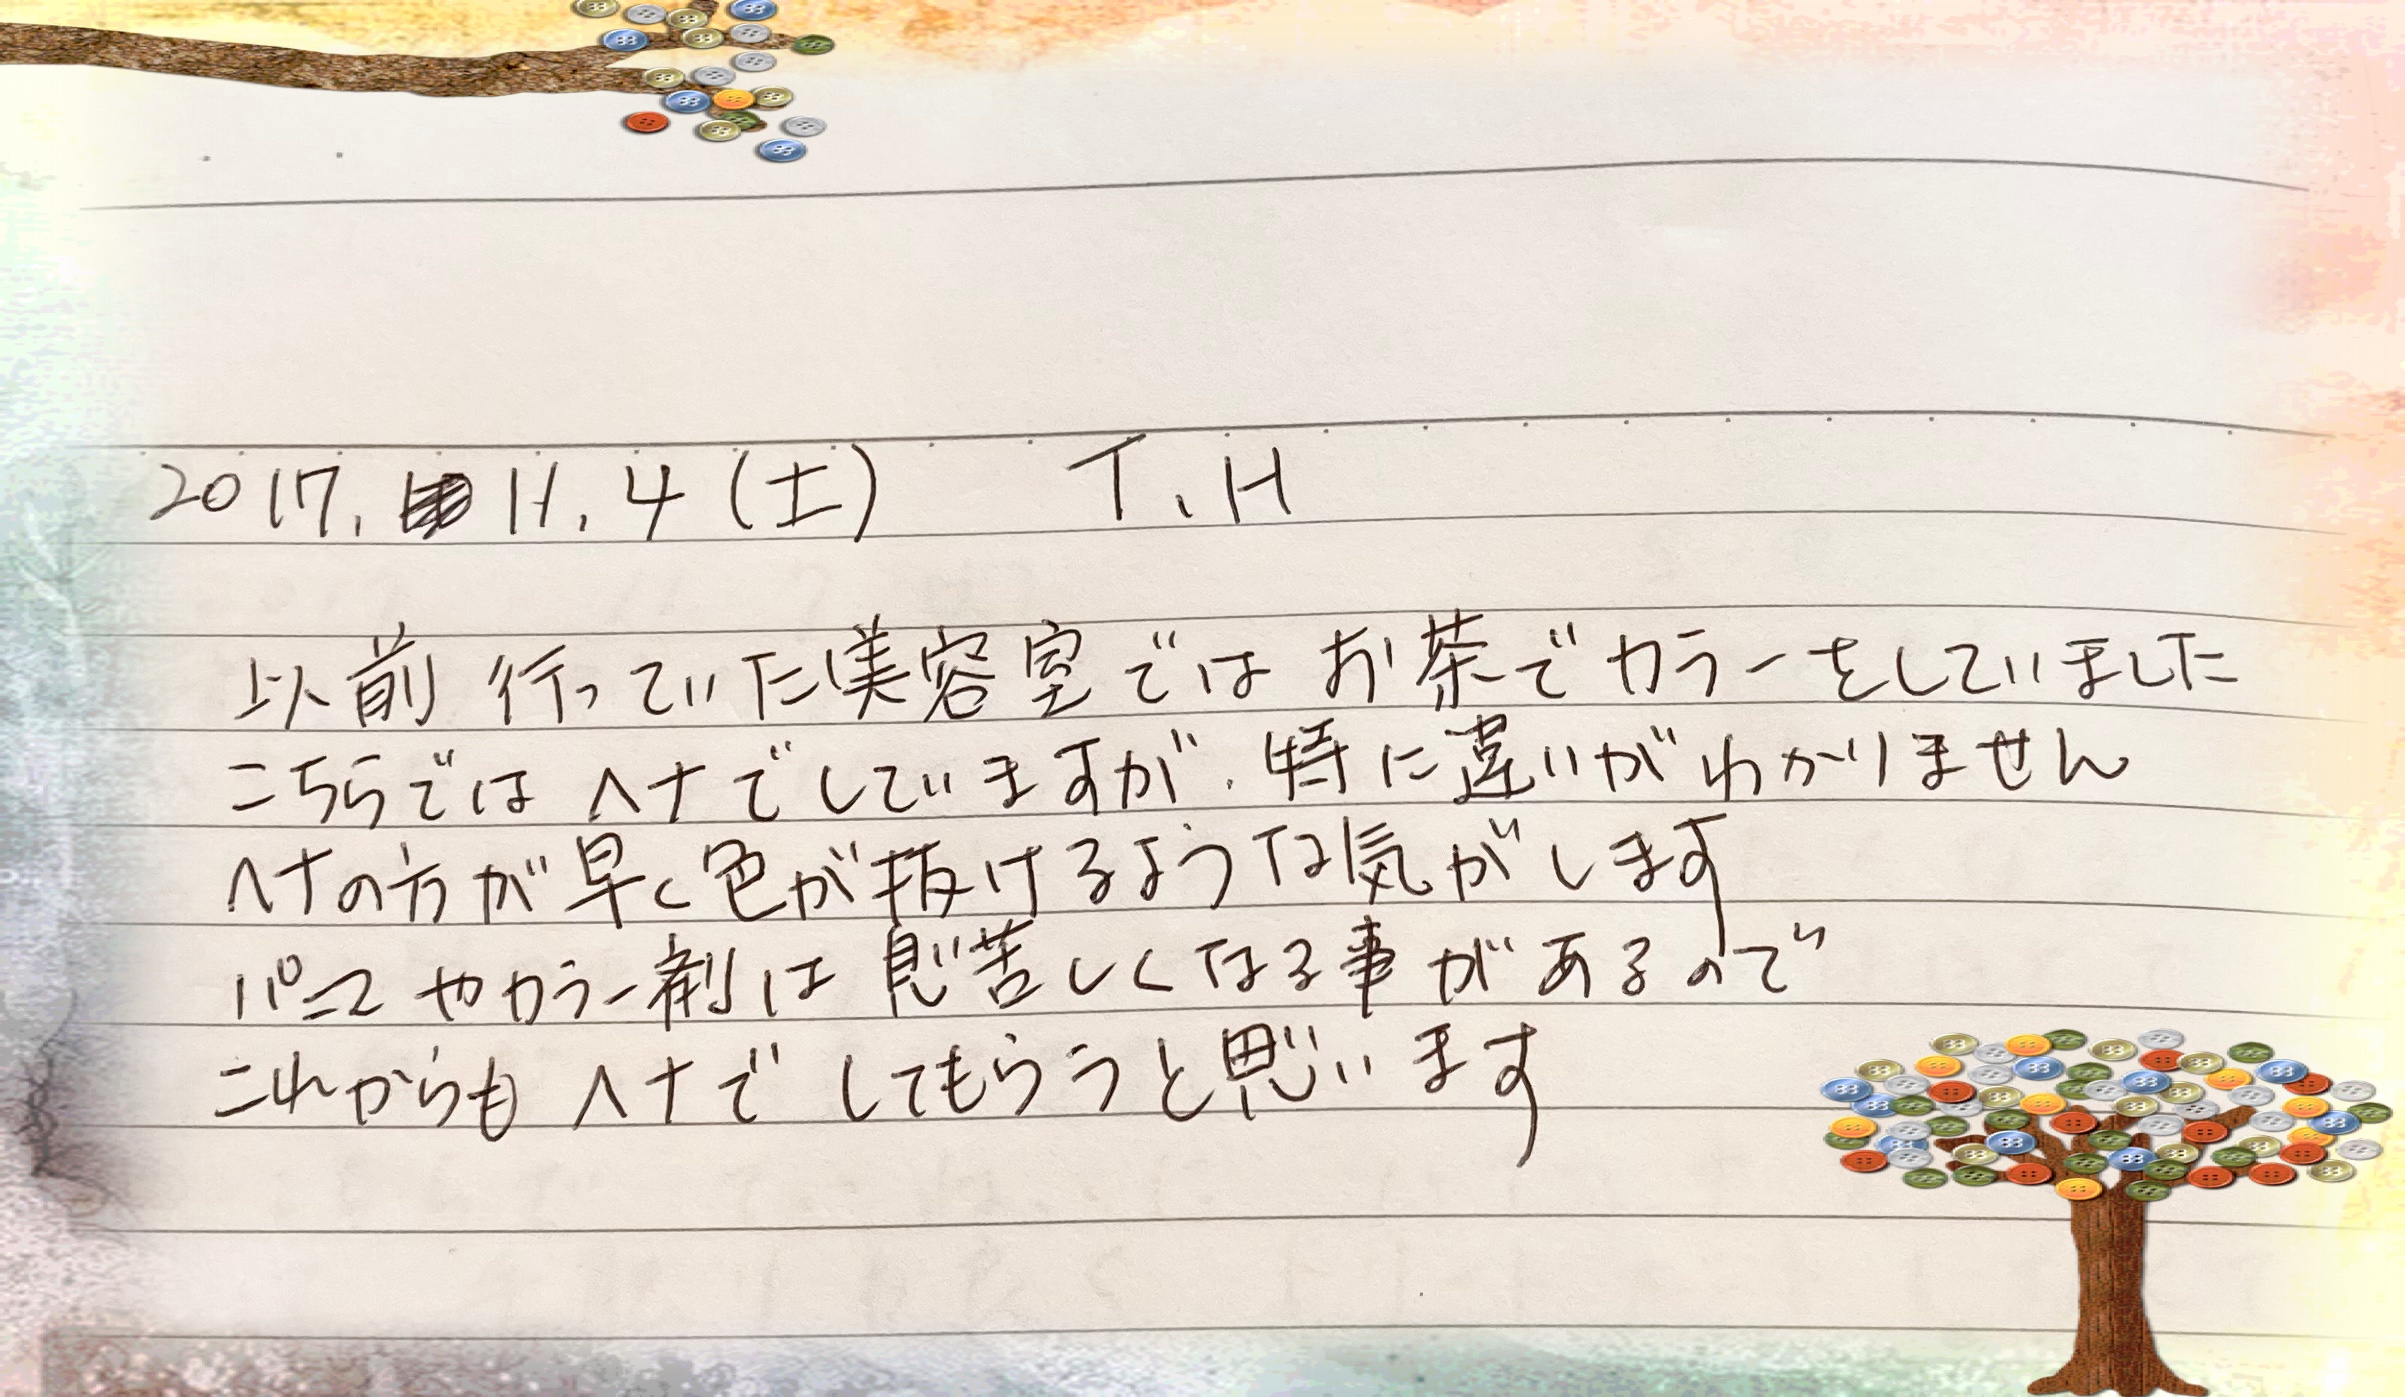 2017. 11. 4 (土) T. H
以前 行っていた美容室では お茶でカラーをしていました
こちらでは ヘナでしていますが、特に違いがわかりません
ヘナの方が早く色が抜けるような気がします
パーマやカラー剤は息苦しくなる事があるので
これからも ヘナで してもらうと思います